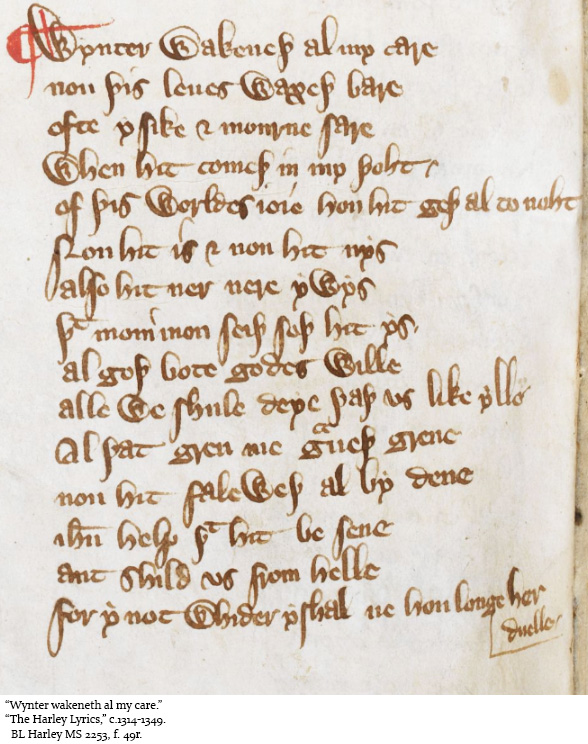 ¶ Wynter Wakeneþ al my care
nou þis leues Waxeþ bare
ofte y sike ⁊ mourne sare
When hit comeþ in my þoht
of þis Worldes ioie hou hit geþ al to noht
Nou hit is ⁊ nou hit nys
also hit ner nere yWys
þᵗ moni mon seiþ soþ hit ys.
al goþ bote godes Wille
alle We shule deye þaþ vs like ylle
Al þat gren me gᵃueþ grene
nou hit faleWeþ al by dene
ihū help þᵗ hit be sene
ant shild vs from helle
for y not Whider y shal ne hou longe her
duelle
“Wynter wakeneth al my care.”
“The Harley Lyrics,” c.1314-1349.
BL Harley MS 2253, f. 49r.